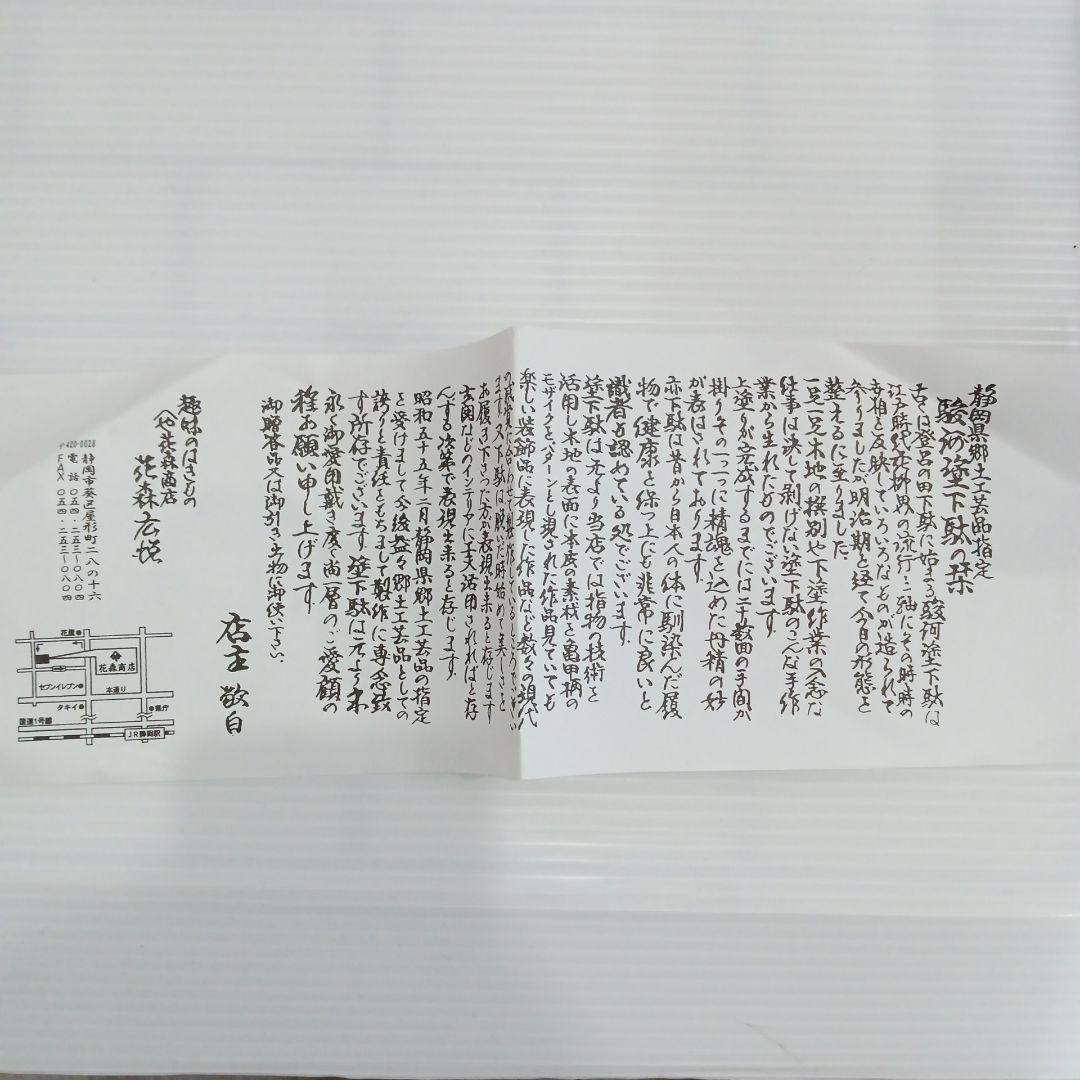 静岡県郷土工芸品指定
駿河塗下駄の栞
古くは登呂の田下駄に始まる駿河塗下駄は
江戸時代花柳界の流行を軸にその時時の
世相を反映していろいろなものが造られて
参りましたが明治期を経て今日の形態を
整えるに至りました。
一足一足木地の撰別や下塗作業の念な
仕事は決して剥げない塗下駄のこんな手作
業から生れたものでございます。
上塗りが完成するまでには二十数回の手間が
掛りその一つ一つに精魂を込めた丹精の妙
が表はされております。
亦下駄は昔から日本人の体に馴染んだ履
物で健康を保つ上にも非常に良いと
識者も認めている処でございます。
塗下駄は元より当店では指物の技術を
活用し木地の表面に本度の素材を亀甲柄の
モザイクをパターンとし現された作品見ていても
楽しい装飾品に表現した作品など数々の現代
ます。又下駄は脱いだ時始めて美しさを
お履き下さった方が表現出来ると存じます
玄関などのインテリアに丈夫活用されればと存
んする次第で表現出来ると存じます。
昭和五十五年二月静岡県郷土工芸品の指定
を受けまして今後益々郷土工芸品としての
誇りと責任をもちまして製作に専念致
す所存でございます。塗下駄は元より末
永く御愛用戴き度く尚一層のご愛顧の
程お願い申し上げます。
御贈答品又は御引き出物に御使い下さい。
店主 敬白
趣味のはきもの
花森商店
花森
〒420-0028
静岡市葵区屋形町二八の十六
電話 〇五四・二五三・〇八〇四
FAX 〇五四・二五三・〇八〇四
花屋
花森商店
セブンイレブン
本通り
タキイ
県庁
国道1号線
JR静岡駅